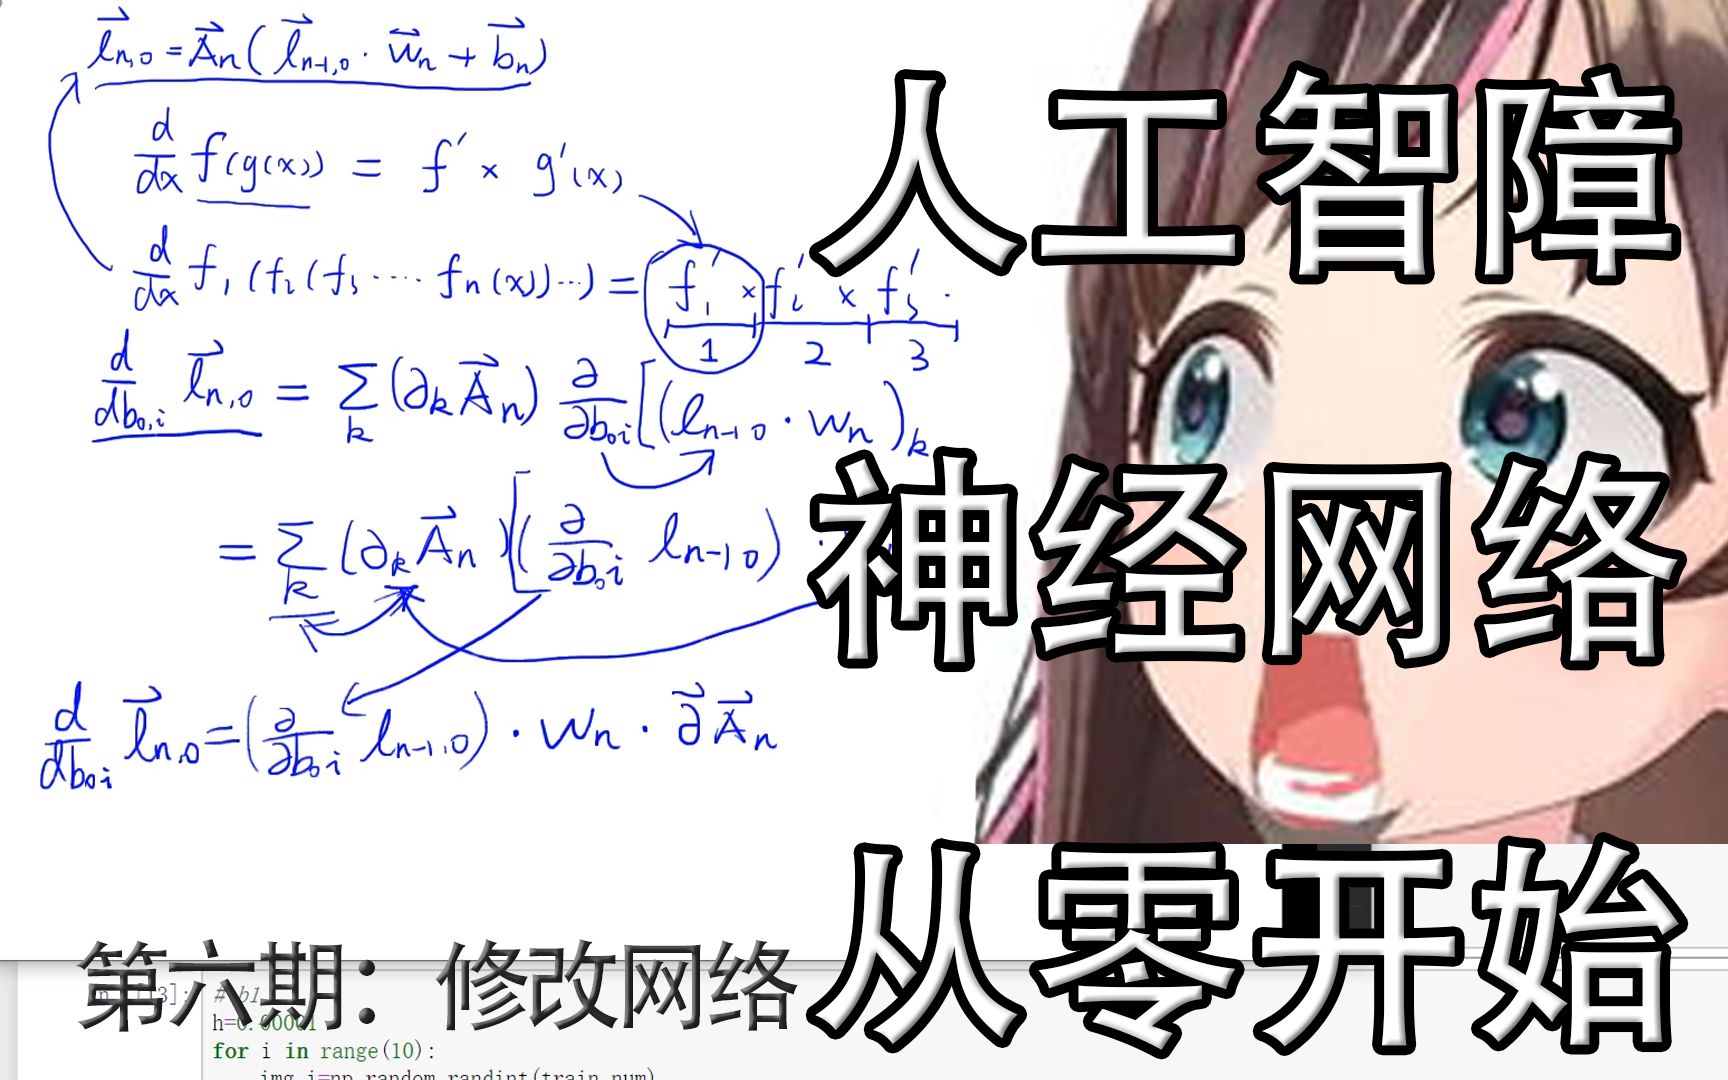 l⃗n,0 = A⃗n( l⃗n-1,0 · w⃗n + b⃗n)
d/dx f(g(x)) = f' × g'(x)
d/dx f1(f2(f3 ···· fn(x))···) = f1' × f2' × f3' ·
1 2 3
d/db0,i l⃗n,0 = Σk (∂k A⃗n) ∂/∂b0i [(ln-1 0 · wn)k
= Σk (∂k A⃗n) [(∂/∂b0i ln-1 0) ·
d/db0i l⃗n,0 = (∂/∂b0i ln-1,0) · wn · ∂⃗ A⃗n
人工智障
神经网络
从零开始
第六期：修改网络
3]: # b1
h=0.00001
for i in range(10):
img_i=np.random.randint(train_num)